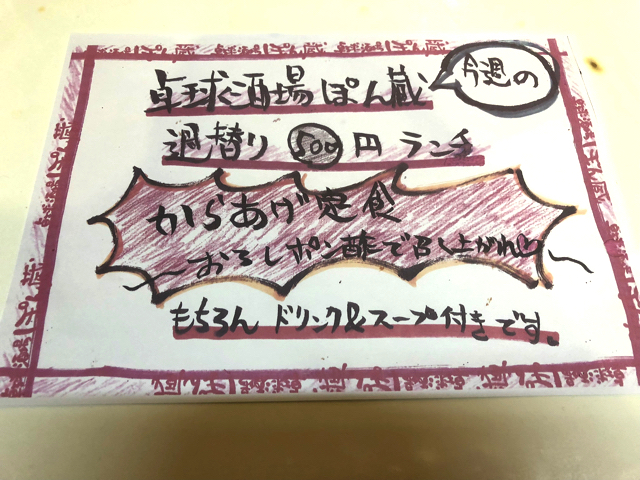 今週の
卓球酒場ぽん蔵
週替り 500円 ランチ
からあげ定食
〜おろしポン酢で召し上がれ♡〜
もちろん ドリンク&スープ付きです。